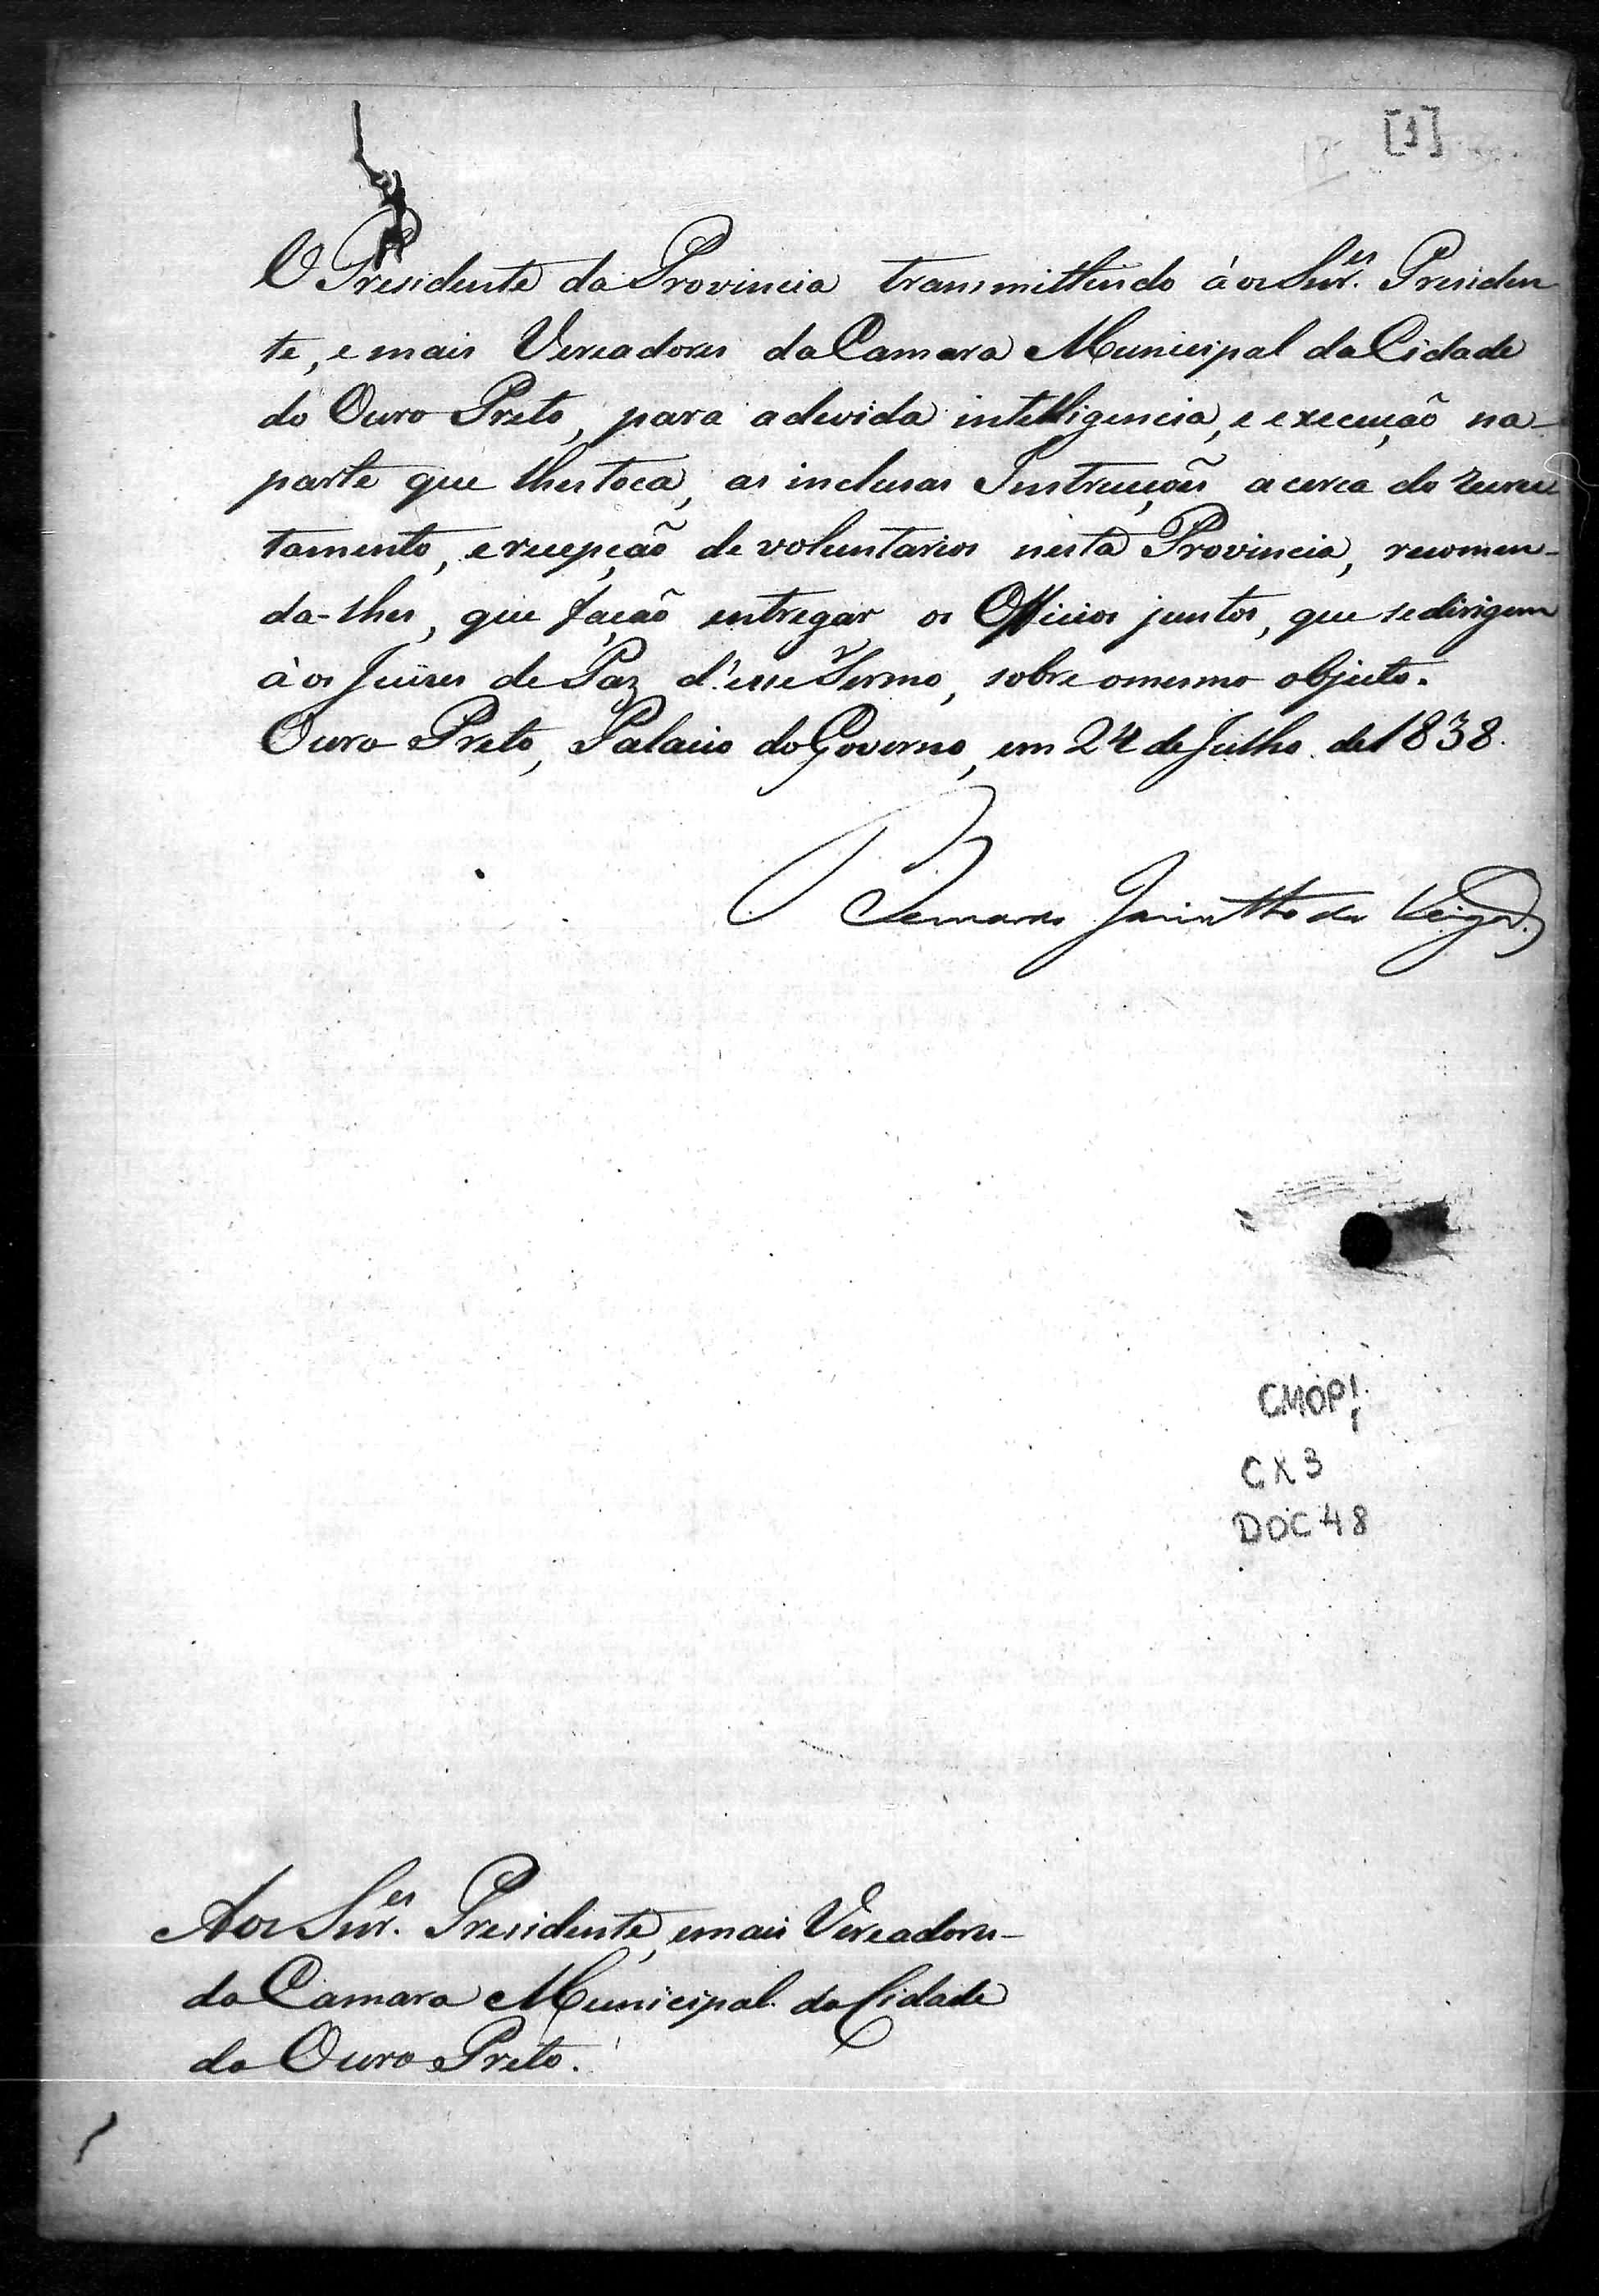 [1]
O Presidente da Provincia transmittindo à os Snr.es Presiden
te, e mais Vereadores da Camara Municipal da Cidade
do Ouro Preto, para a devida intelligencia, e execução na
parte que lhes toca, as inclusas Instrucções acerca do recru
tamento, e recepção de voluntarios nesta Provincia, recomen-
da-lhes, que fação entregar os Officios juntos, que se dirigem
à os Juizes de Paz d'esse Termo, sobre o mesmo objecto.
Ouro Preto, Palacio do Governo, em 24 de Julho de 1838.
Bernardo Jacintho da Veiga.
CMOP
CX 3
DOC 48
Aos Snr.es Presidente, e mais Vereadores
da Camara Municipal da Cidade
do Ouro Preto.